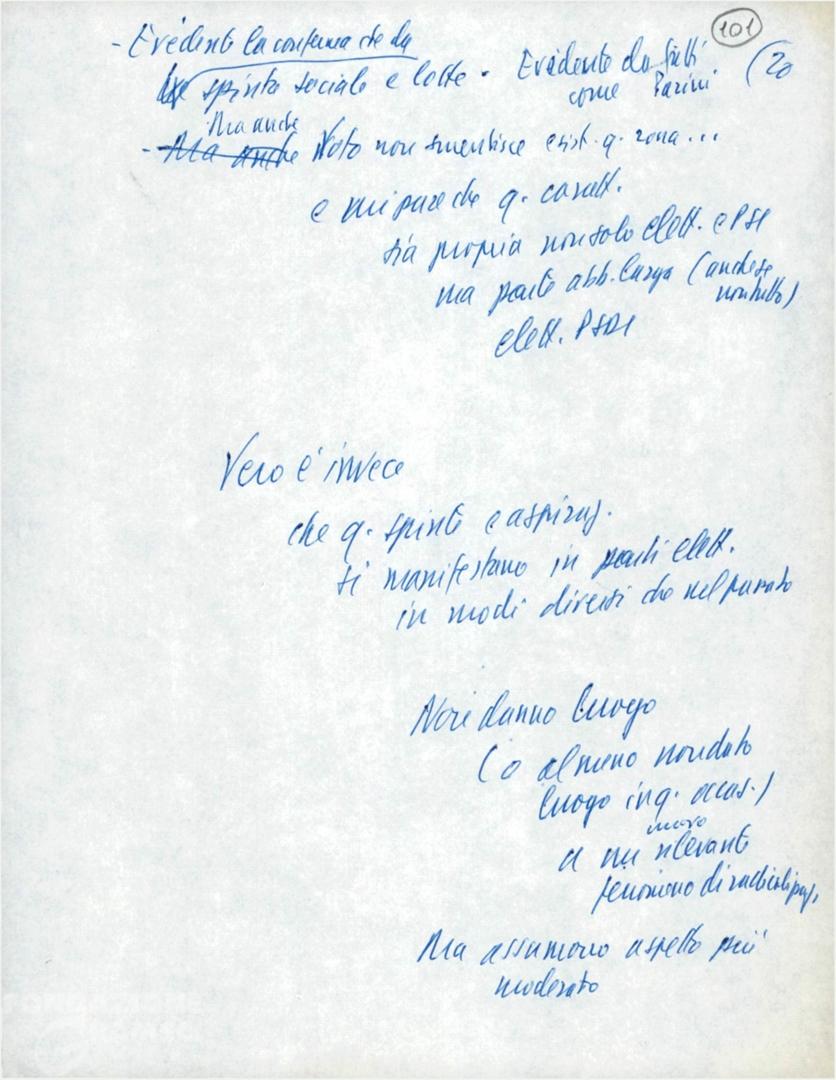 101
(20
- Evidente la conferma che da
spinta sociale e lotte. Evidente da fatti
come Parini
Ma anche
- Ma anche Voto non smentisce esist. q. zona...
e mi pare che q. caratt.
sia propria non solo elett. e PSI
ma parte abb. larga (anche se
non tutto)
elett. PSDI
Vero è invece
che q. spinte e aspiraz.
si manifestano in parti elett.
in modi diversi che nel passato
Non danno luogo
(o almeno non dato
luogo in q. occas.)
nuovo
a un rilevante
fenomeno di radicalizzaz.
Ma assumono aspetto più
moderato